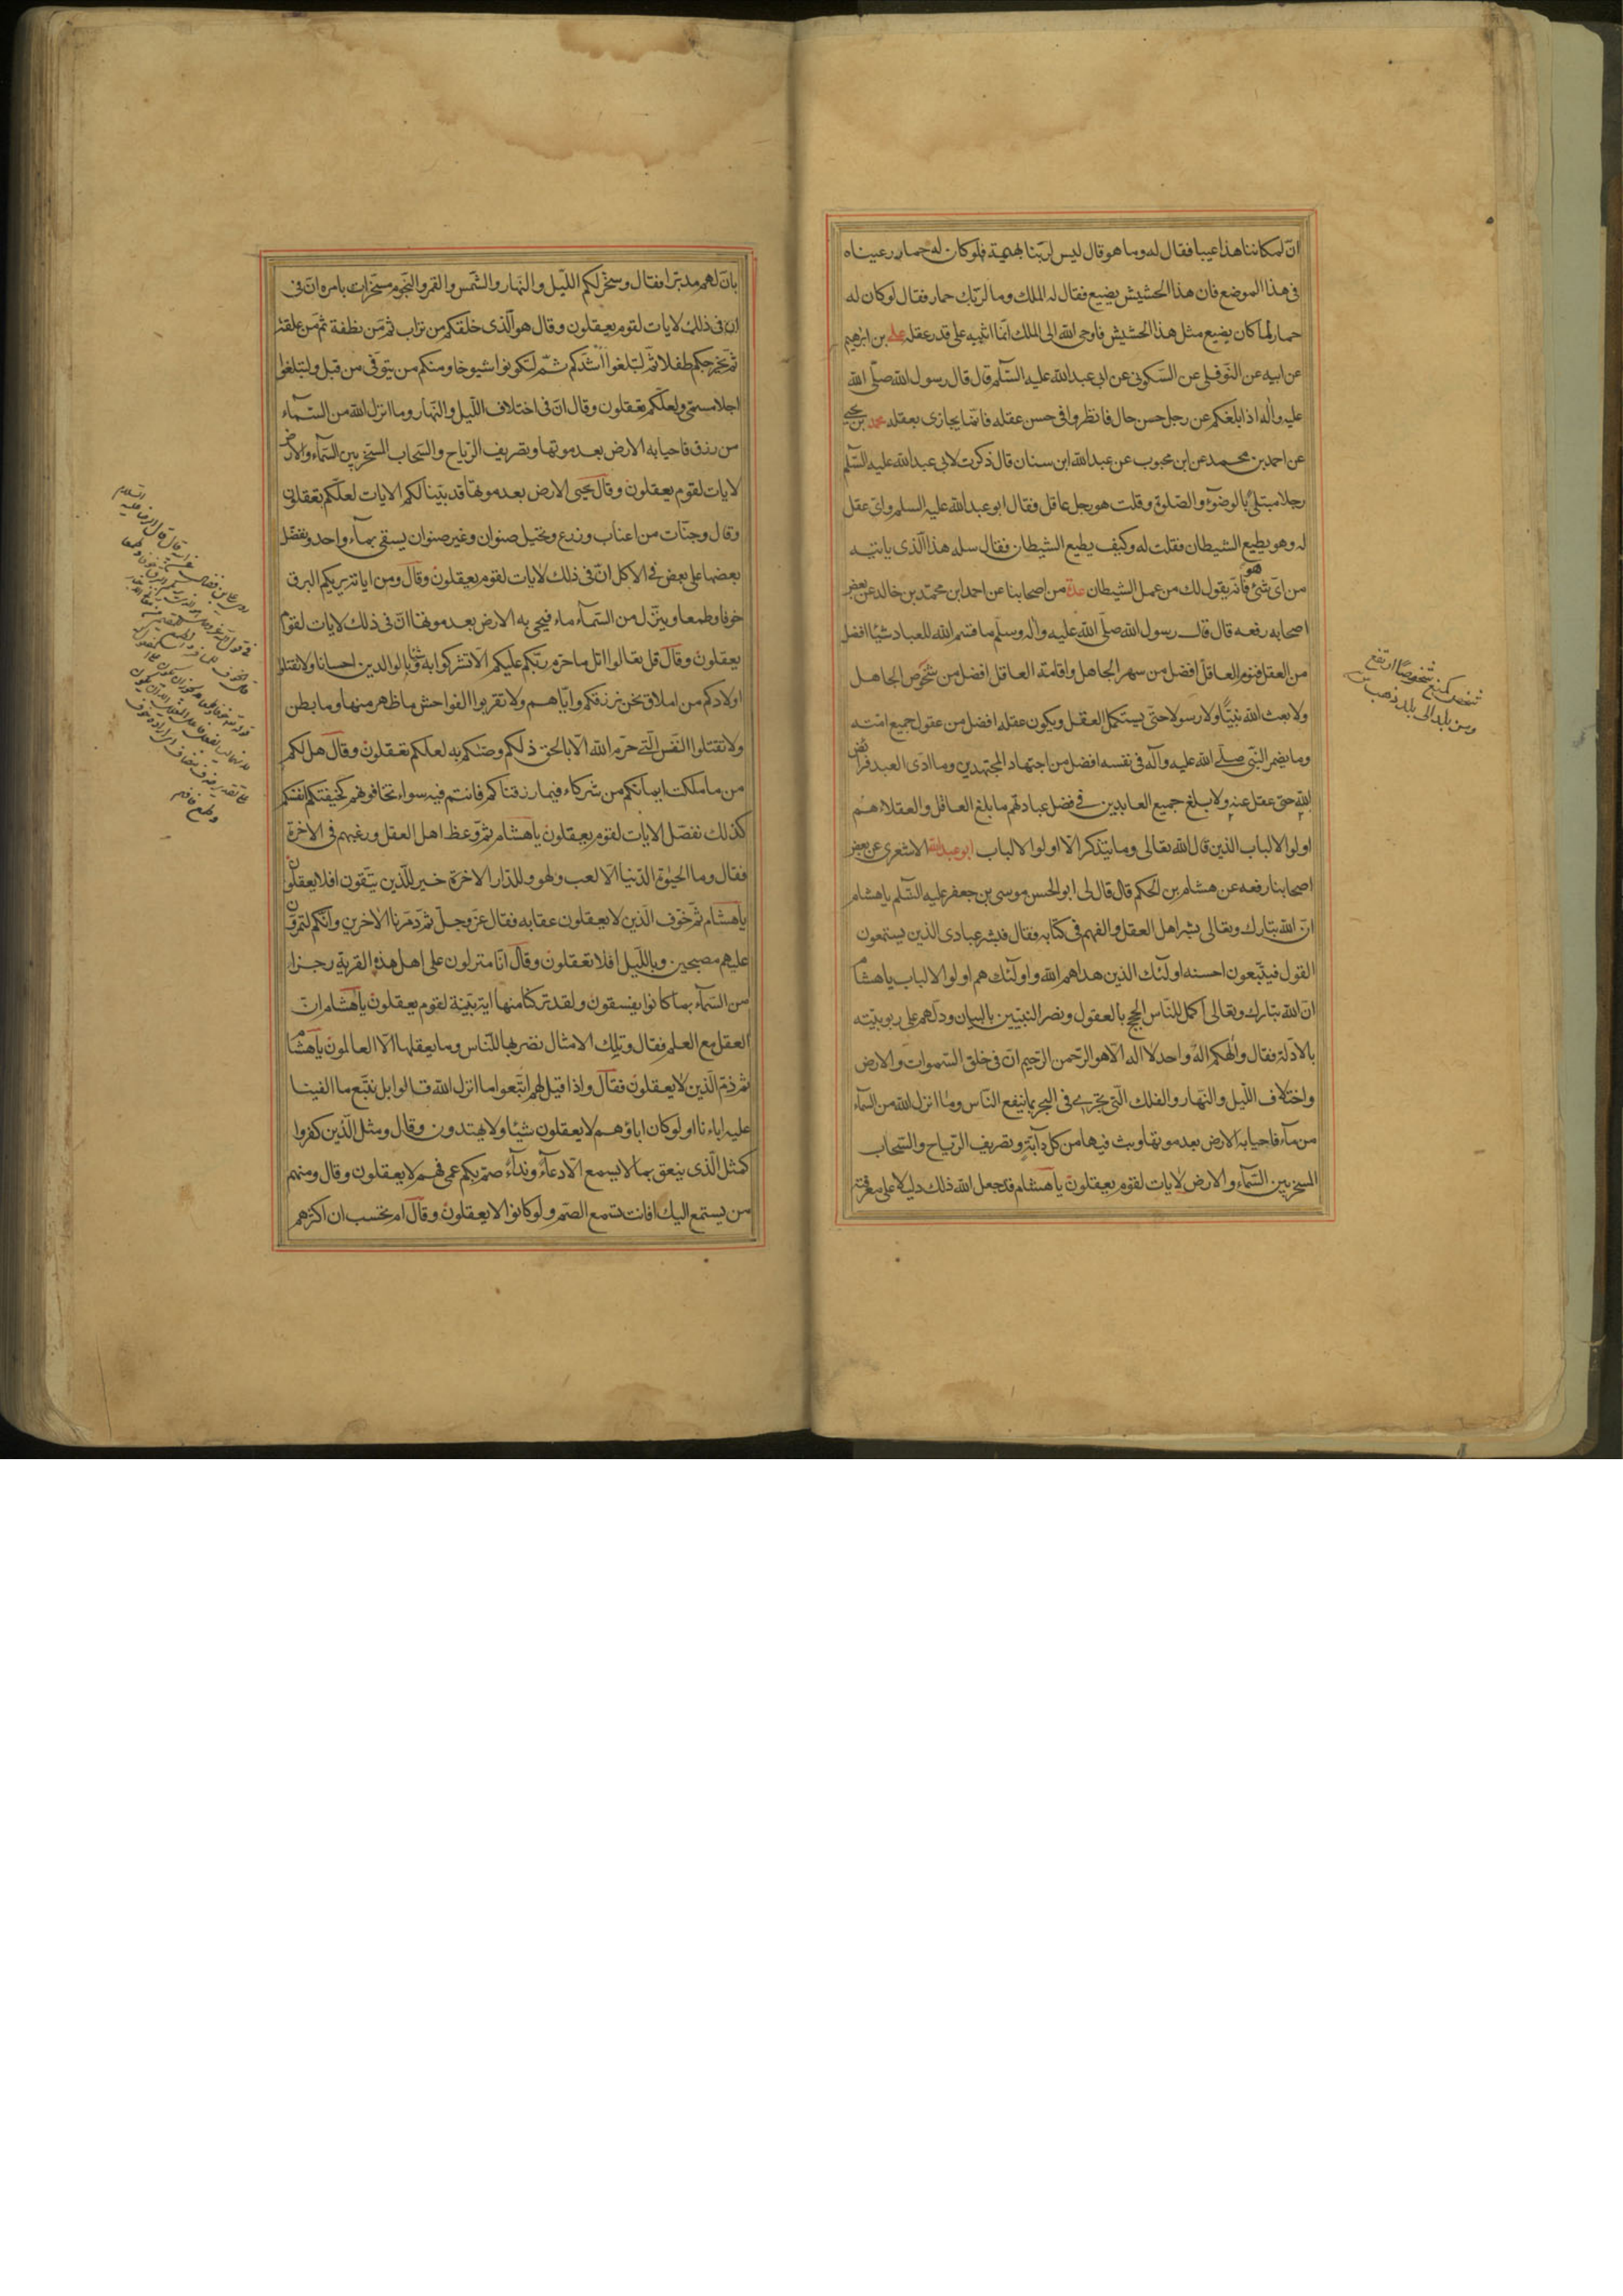 انّ لمكاننا هذا عيبا فقال له وما هو قال ليس لربّنا بهيمة فلو كان له حمار رعيناه
فى هذا الموضع فان هذا الحشيش يضيع فقال له الملك وما لربّك حمار فقال لو كان له
حمار لما كان يضيع مثل هذا الحشيش فاوحى الله الى الملك انّما اثيبه على قدر عقله علي بن ابرهيم
عن ابيه عن النّوفلى عن السّكونى عن ابى عبد الله عليه السّلم قال قال رسول الله صلّى الله
عليه واله اذا بلغكم عن رجل حسن حال فانظروا فى حسن عقله فانّما يجازى بعقله محمد بن يحيى
عن احمد بن محمد عن ابن محبوب عن عبد الله ابن سنان قال ذكرت لابى عبد الله عليه السّلم
رجلا مبتلى بالوضوء والصّلوة وقلت هو رجل عاقل فقال ابو عبد الله عليه السلم واىّ عقل
له وهو يطيع الشيطان فقلت له وكيف يطيع الشيطان فقال سله هذا الّذى ياتيه
من اىّ شئ هو فانّه يقول لك من عمل الشيطان عدة من اصحابنا عن احمد ابن محمّد بن خالد عن بعض
اصحابه رفعه قال قال رسول الله صلّى الله عليه واله وسلّم ما قسم الله للعباد شيئا افضل
من العقل فنوم العاقل افضل من سهر الجاهل واقامة العاقل افضل من شخوص الجاهل
ولا بعث الله نبيّا ولا رسولا حتّى يستكمل العقل ويكون عقله افضل من عقول جميع امّته
وما يضمر النّبى صلّى الله عليه وآله فى نفسه افضل من اجتهاد المجتهدين وما ادّى العبد فرائض
الله حتى عقل عنه ولا بلغ جميع العابدين فى فضل عبادتهم ما بلغ العاقل والعقلاء هم
اولوا الالباب الذين قال الله تعالى وما يتذكر الّا اولوا الالباب ابو عبد الله الاشعرى عن بعض
اصحابنا رفعه عن هشام بن الحكم قال قال لى ابو الحسن موسى بن جعفر عليه السّلم ياهشام
انّ الله تبارك وتعالى بشر اهل العقل والفهم فى كتابه فقال فبشر عبادى الذين يستمعون
القول فيتّبعون احسنه اولئك الذين هداهم الله واولئك هم اولوا الالباب ياهشام
ان الله تبارك وتعالى اكمل للنّاس الحجج بالعقول ونصر النبيّين بالبيان ودلّهم على ربوبيّته
بالادلة فقال والهكم اله واحد لا اله الّا هو الرّحمن الرّحيم انّ فى خلق السّموات والارض
واختلاف اللّيل والنّهار والفلك الّتى تجرى فى البحر بما ينفع النّاس وما انزل الله من السّماء
من ماء فاحيا به الارض بعد موتها وبث فيها من كلّ دابّة وتصريف الرّياح والسّحاب
المسخر بين السّماء والارض لايات لقوم يعقلون ياهشام قد جعل الله ذلك دليلا على معرفته
شخص كمنع شخوصًا ارتفع
ومن بلد الى بلد ذهب
بانّ لهم مدبّرا فقال وسخّر لكم اللّيل والنّهار والشّمس والقمر والنّجوم مسخّرات بامره انّ فى
انّ فى ذلك لايات لقوم يعقلون وقال هو الّذى خلقكم من تراب ثمّ من نطفة ثمّ من علقة
ثمّ يخرجكم طفلا ثمّ لتبلغوا اشدّكم ثمّ لتكونوا شيوخا ومنكم من يتوفّى من قبل ولتبلغوا
اجلا مسمّى ولعلّكم تعقلون وقال انّ فى اختلاف اللّيل والنّهار وما انزل الله من السّماء
من رزق فاحيا به الارض بعد موتها وتصريف الرّياح والسّحاب المسخّر بين السّماء والارض
لايات لقوم يعقلون وقال يحيى الارض بعد موتها قد بيّنا لكم الايات لعلّكم تعقلون
وقال وجنّات من اعناب وزرع ونخيل صنوان وغير صنوان يسقى بماء واحد ونفضّل
بعضها على بعض فى الاكل انّ فى ذلك لايات لقوم يعقلون وقال ومن اياته يريكم البرق
خوفا وطمعا وينزّل من السّماء ماء فيحيى به الارض بعد موتها انّ فى ذلك لايات لقوم
يعقلون وقال قل تعالوا اتل ما حرّم ربّكم عليكم الّا تشركوا به شيئا وبالوالدين احسانا ولا تقتلوا
اولادكم من املاق نحن نرزقكم وايّاهم ولا تقربوا الفواحش ما ظهر منها وما بطن
ولا تقتلوا النّفس الّتى حرّم الله الّا بالحق ذلكم وصّيكم به لعلّكم تعقلون وقال هل لكم
من ما ملكت ايمانكم من شركاء فيما رزقناكم فانتم فيه سواء تخافونهم كخيفتكم انفسكم
كذلك نفصّل الايات لقوم يعقلون ياهشام ثمّ وعظ اهل العقل ورغبهم فى الاخرة
فقال وما الحيوة الدّنيا الّا لعب ولهو وللدّار الاخرة خير للّذين يتّقون افلا يعقلون
ياهشام ثمّ خوّف الّذين لا يعقلون عقابه فقال عزّ وجلّ ثمّ دمّرنا الاخرين وانّكم لتمرّون
عليهم مصبحين وباللّيل افلا تعقلون وقال انّا منزلون على اهل هذه القرية رجزا
من السّماء بما كانوا يفسقون ولقد تركنا منها اية بيّنة لقوم يعقلون ياهشام انّ
العقل مع العلم فقال وتلك الامثال نضربها للنّاس وما يعقلها الّا العالمون ياهشام
ثمّ ذمّ الّذين لا يعقلون فقال واذا قيل لهم اتّبعوا ما انزل الله قالوا بل نتّبع ما الفينا
عليه اباءنا اولو كان اباؤهم لا يعقلون شيئا ولا يهتدون وقال ومثل الّذين كفروا
كمثل الّذى ينعق بما لا يسمع الّا دعاء ونداء صمّ بكم عمى فهم لا يعقلون وقال ومنهم
من يستمع اليك افانت تسمع الصّم ولو كانوا لا يعقلون وقال ام تحسب ان اكثرهم